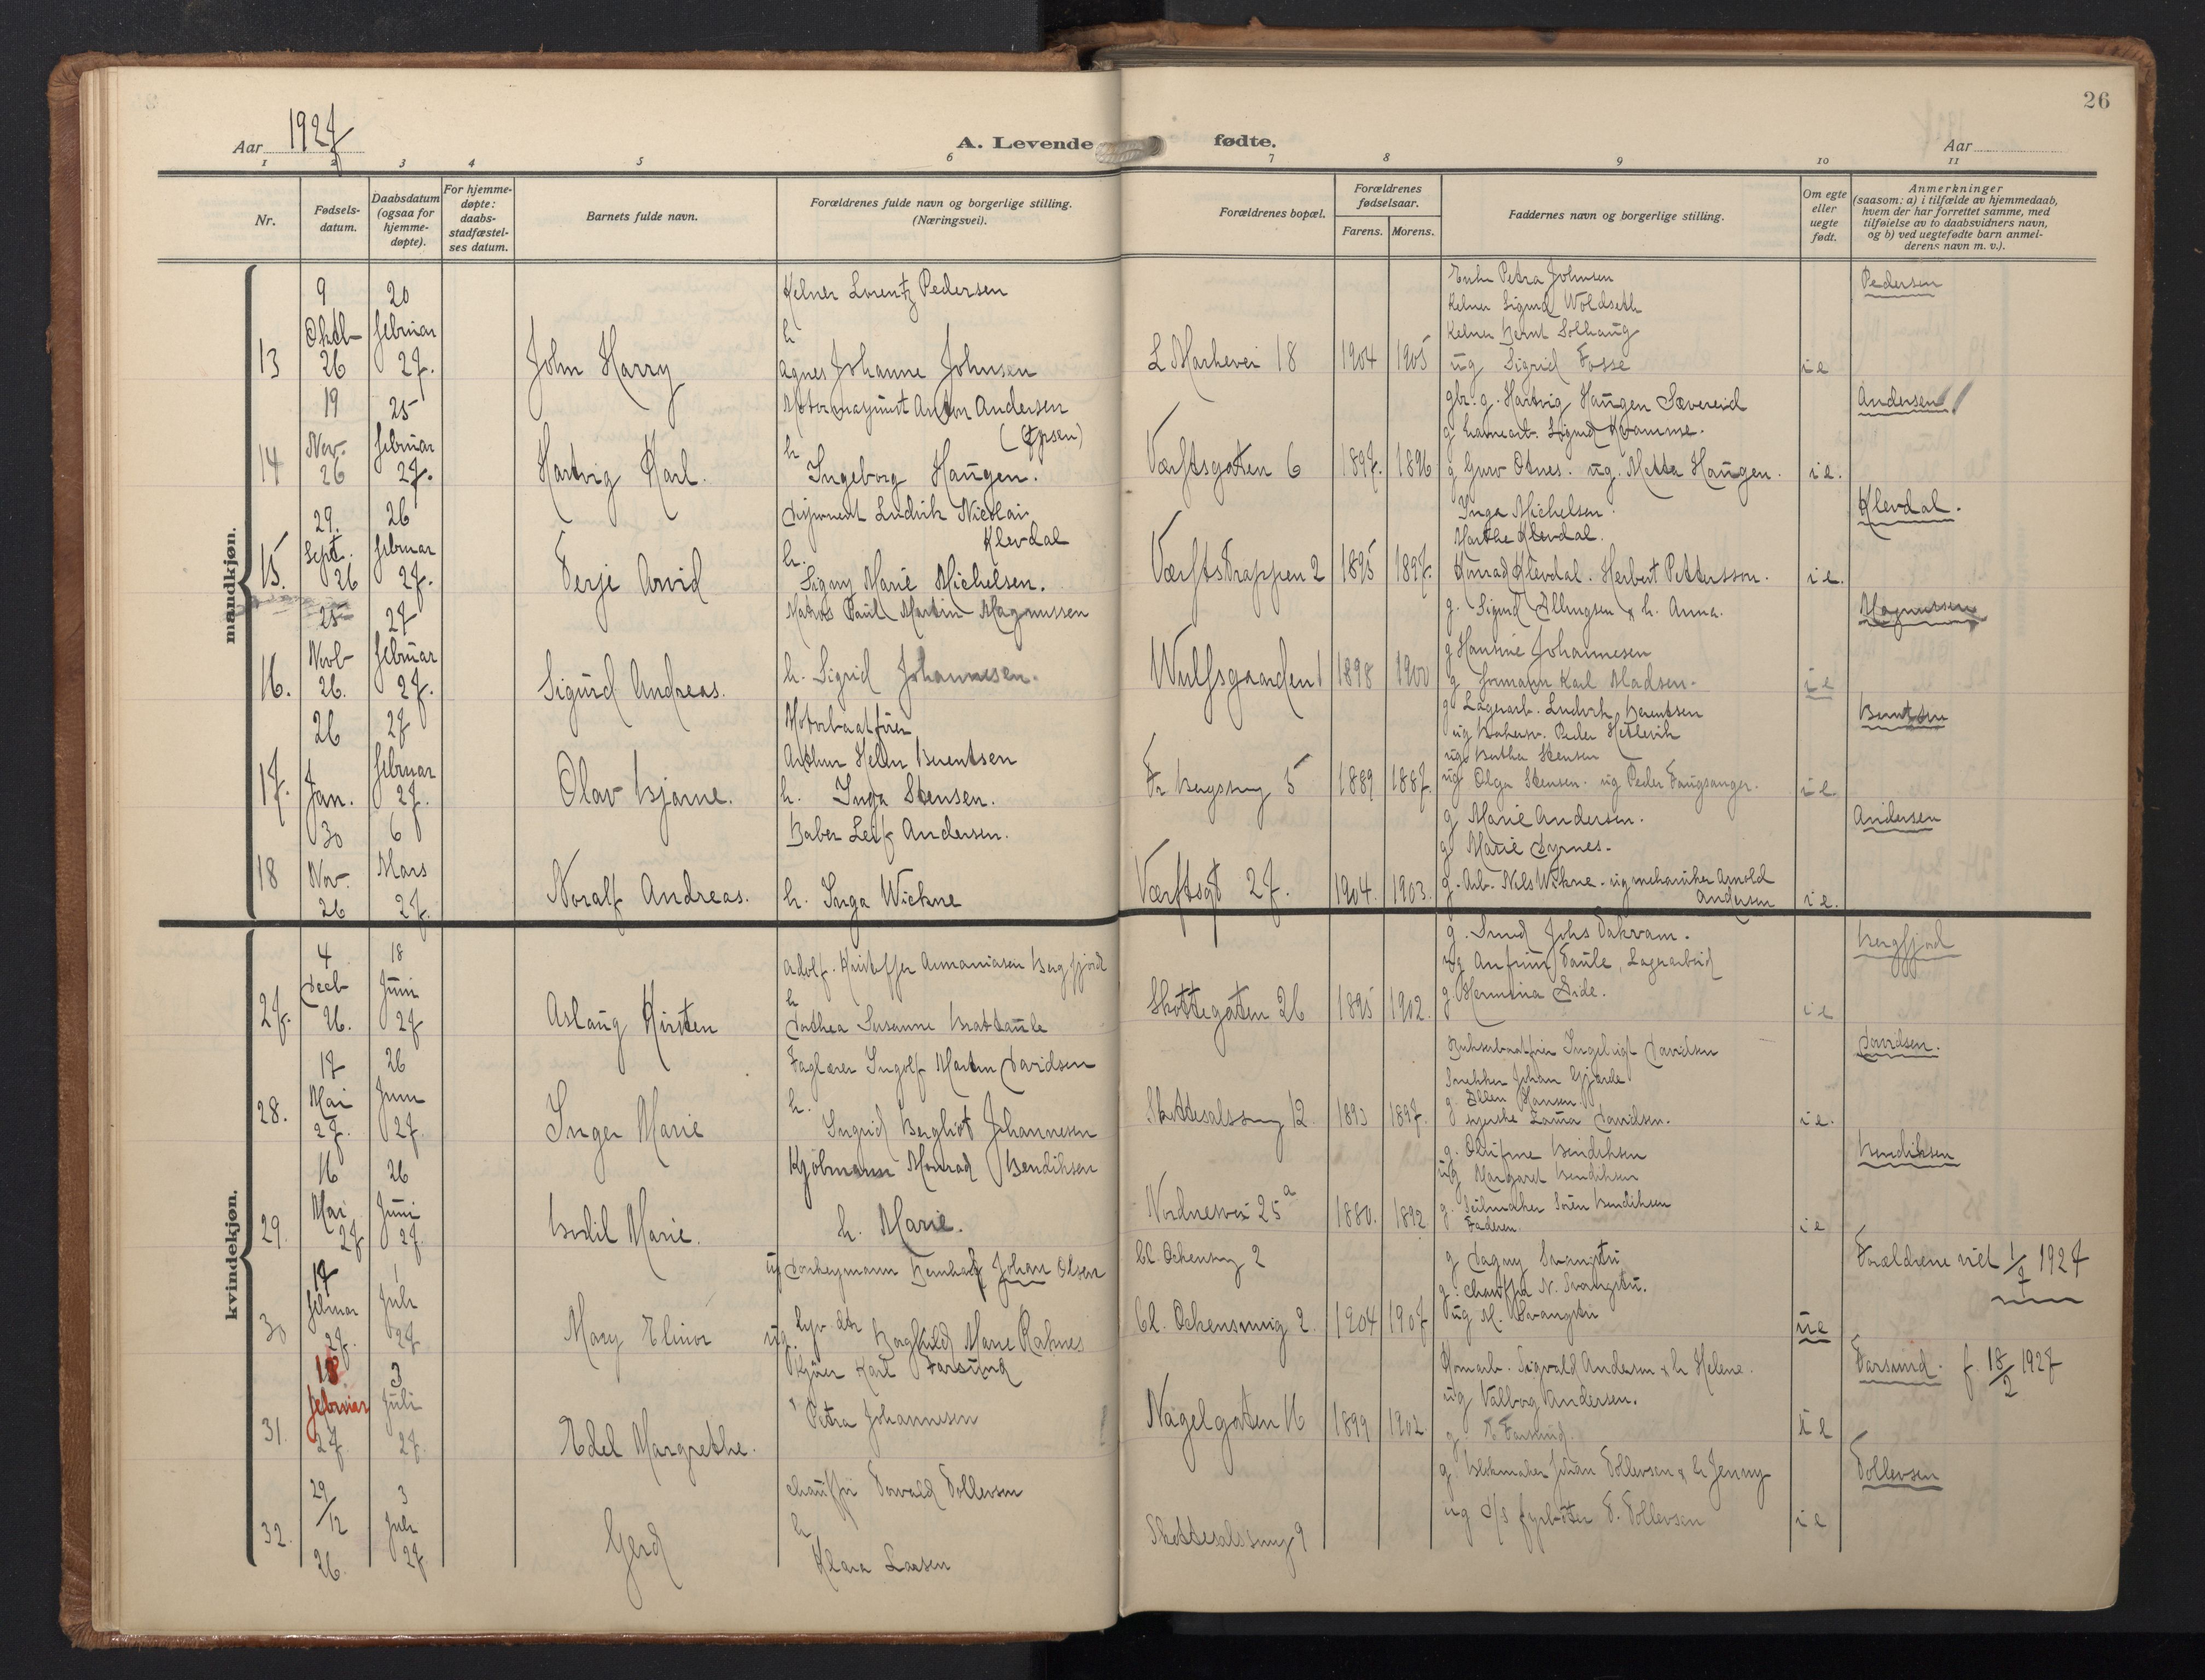 26
Aar 1927
A. Levende fødte.
Aar
1 2 3 4 5 6 7 8 9 10 11
Nr.
Fødsels-
datum.
Daabsdatum
(ogsaa for
hjemme-
døpte).
For hjemme-
døpte:
daabs-
stadfæstel-
ses datum.
Barnets fulde navn.
Forældrenes fulde navn og borgerlige stilling.
(Næringsvei).
Forældrenes bopæl.
Forældrenes
fødselsaar.
Farens. Morens.
Faddernes navn og borgerlige stilling.
Om egte
eller
uegte
født.
Anmerkninger
(saasom: a) i tilfælde av hjemmedaab,
hvem der har forrettet samme, med
tilføielse av to daabsvidners navn,
og b) ved uegtefødte barn anmel-
derens navn m. v.).
mandkjøn.
13
9
Oktb
26
20
februar
27.
John Harry
Kelner Lorentz Pedersen
h
Agnes Johanne Johnsen
L Markevei 18
1904 1905
Enke Petra Johnsen
Kelner Sigurd Woldseth
Kelner Bernt Solhaug
ug Sigrid Fosse
i e
Pedersen
14
19
Nov.
26
25
februar
27.
Hartvig Karl.
Motormaskinist Anton Andersen
h
Ingeborg Haugen.
Værftsgaten 6
1897. 1896
gbr. g. Hartvig Haugen Sævereid
g havnearb. Sigurd Kvamme.
g Guro Otnes. ug. Metta Haugen.
i e.
Andersen
15.
29.
Sept.
26
26
februar
27.
Terje Arvid
Disponent Ludvik Nicolai
Klevdal
h.
Signy Marie Michelsen.
Værftstrappen 2
1895 1897.
Inga Michelsen
Marthe Klevdal.
Konrad Klevdal. Herbert Pettersson.
i e.
Klevdal.
16.
25
Novb
26.
27
februar
27.
Sigurd Andreas.
Matros Paul Martin Magnussen
h. Sigrid Johannesen.
Wulfsgaarden 1
1898 1900
g. Sigurd Ellingsen & h. Anna.
g Hansine Johannesen
g formann Karl Madsen.
i e
Magnussen
17.
26
Jan.
27
februar
27.
Olav Bjarne.
Motorbaatfører
Arthur Helm Berentsen
h. Inga Stensen.
5
1889 1887.
g Lagerarb. Ludvik Berentsen
ug Peder Hetlevik
ug Bertha Stensen
ug Olga Stensen. ug Peder Faugsanger.
i e.
Berntsen
18
30
Nov.
26
6
Mars
27.
Noralf Andreas.
Baber Leif Andersen.
h. Inga Wickne
Værftsgt 27.
1904. 1903.
g Marie Andersen.
g Marie Dyrnes.
g. Arb. Nils Wikne. ug mekaniker Arnold
Andersen
i e.
Andersen
kvindekjøn.
27.
4
Decb
26.
18
Juni
27
Aslaug Kirsten
Adolf Kristoffer Anmaniasen Bergfjord
h
Dorthea Susanne Brattaule
Skottegaten 26
1895 1902.
g. Smed Johs Dakvam.
ug Anfinn Taule, Lagerarbeid
g. Hermina Eide.
i e
Bergfjord
28.
17
Mai
27.
26
Juni
27.
Inger Marie
Faglærer Ingolf Martin Davidsen
h.
Ingrid Bergliot Johannesen
12
1893 1897.
Ingebrigt Davidsen
Snekker Johan Gjærde
g. Ellen Hansen.
Laura Davidsen.
i e.
Davidsen.
29.
16
Mai
27
26
Juni
27.
Bodil Marie.
Kjøbmann Konrad Bendiksen
h. Marie.
Nordnesvei 25 a
1880. 1892
g. Olufine Bendiksen
ug Margaret Bendiksen
g. Seilmaker Søren Bendiksen
Faderen.
i e
Bendiksen
30
17
februar
27.
1
Juli
27
Mary Elinor
ug Donkeymann Bernhard Johan Olsen
ug Borghild Marie Raknes
Cl. Ockensmug 2
Cl. Ockensmuig 2.
1904 1907
g Dagny Svangstu
g. chauffør N. Svangstu.
ug M. Svangstu
u e
Forældrene viet 1/7 1927
31.
18
februar
27.
3
Juli
27.
Edel Margrethe.
Kjører Karl Farsund
Petra Johannesen
Nagelgaten 16
1899 1902
Sigvald Andersen & h Helene.
ug Valborg Andersen.
g. E Farsund.
i e
Farsund. f. 18/2 1927
32.
29/12
26
3
Juli
27
Gerd
chauffør Torvald Tollevsen
h
Klara Larsen
9
g. Blokmaker Johan Tollevsen & h Jenny
ug D/s fyrbøter T. Tollevsen
i e
Tollevsen